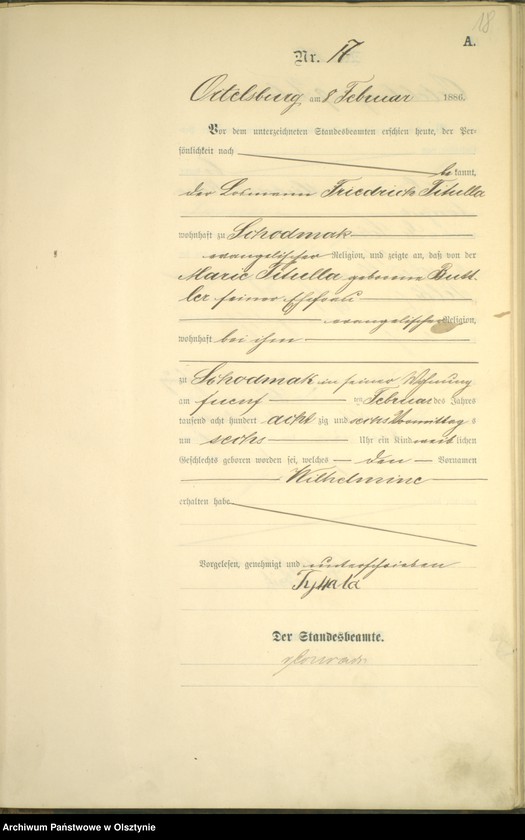 18
A.
Nr. 17
Ortelsburg am 8 Februar 1886.
Vor dem unterzeichneten Standesbeamten erschien heute, der Per-
sönlichkeit nach
be kannt,
der Losmann Friedrich Titulla
wohnhaft zu Schodmak
evangelischer Religion, und zeigte an, daß von der
Marie Titulla geborene Butt-
ler seiner Ehefrau
evangelischer Religion,
wohnhaft bei ihm
zu Schodmak in seiner Wohnung
am fuenf ten Februar des Jahres
tausend acht hundert acht zig und sechs Vormittag s
um sechs Uhr ein Kind weib lichen
Geschlechts geboren worden sei, welches den Vornamen
Wilhelmine
erhalten habe
Vorgelesen, genehmigt und unterschrieben
Der Standesbeamte.
Archiwum Państwowe w Olsztynie